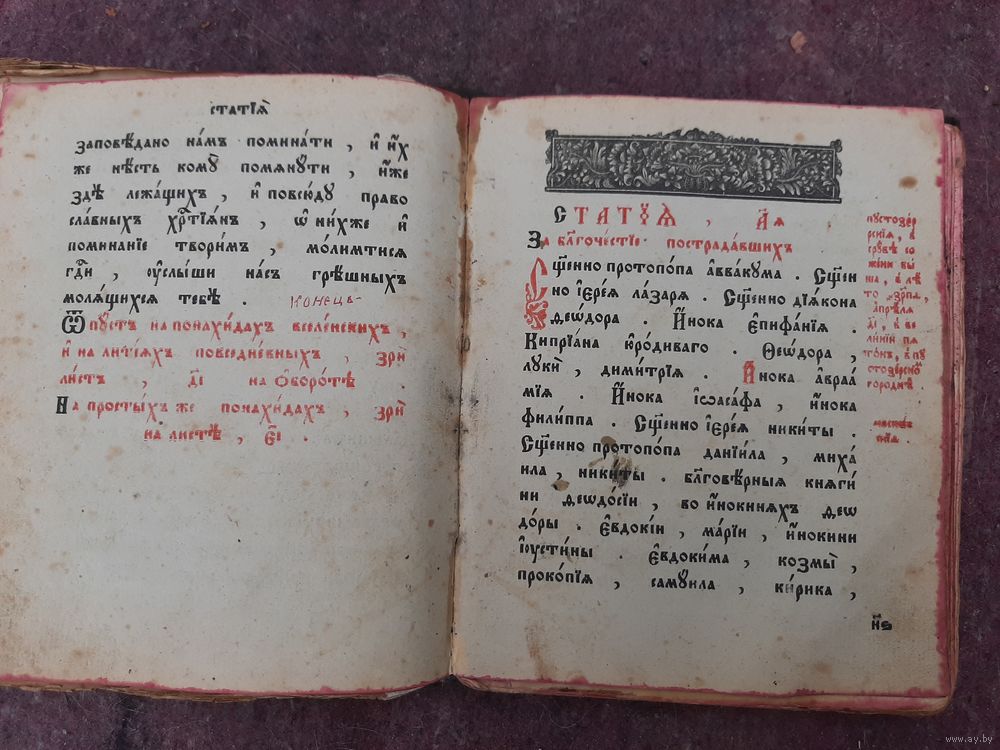 статїѧ̀
заповѣдано на́мъ помина́ти , и҆ и҆́х
же нѣ́сть комꙋ̀ помѧнꙋ́ти , и҆́же
здѣ̀ лежа́щихъ , и҆ повсю́дꙋ право
сла́вныхъ хрⷭ҇тїѧ́нъ , ѡ҆ ни́хже и҆
помина́нїе твори́мъ , мо́лимтисѧ
гдⷭ҇и , ᲂу҆слы́ши на́съ грѣ́шныхъ
молѧ́щихсѧ тебѣ̀ . Конецъ
Ѿпꙋ́стъ на понахи́дахъ вселе́нскихъ ,
и҆ на литїѧ́хъ повседне́вныхъ , зрѝ
ли́стъ , д҃і на ѻ҆боро́тѣ .
На просты́хъ же понахи́дахъ , зрѝ
на листѣ̀ , є҃і .
СТАТЇѦ̀ , а҃ѧ
За бл҃гоче́стїе пострада́вшихъ
Сщ҃е́нно протопо́па а҆ввакꙋ́ма . Сщ҃е́н
но і҆ере́ѧ ла́зарѧ . Сщ҃е́нно дїѧ́кона
ѳео́дѡра . И҆́нока є҆пифа́нїѧ .
Кипрїа́на ю҆ро́диваго . Ѳеѡ́дора ,
лꙋкѝ , дими́трїѧ . И҆́нока а҆враа́
мїѧ . И҆́нока і҆ѡаса́фа , и҆́нока
фили́ппа . Сщ҃е́нно і҆ере́ѧ ники́ты .
Сщ҃е́нно протопо́па данїи́ла , миха́
ила , ники́ты . бл҃говѣ́рныѧ кнѧги́
ни ѳеѡдо́сїи , во и҆́нокинѧхъ ѳеѡ
до́ры . Є҆вдокі́и , ма́рїи , и҆́нокини
і҆ꙋсти́ны . Є҆вдоки́ма , козмы̀ ,
проко́пїѧ , самꙋ́ила , ки́рика ,
пꙋстозе́р
скїѧ , в
срꙋ́бѣ со
жже́ни бы́
ша , в лѣ́
то ҂зр҃па ,
а҆прѣ́лѧ
д҃і , в ве
ли́кїи пѧ
то́къ , в пꙋ
стозе́рскомъ
городкѣ̀ .
моско́в
скїѧ .
www.ay.by